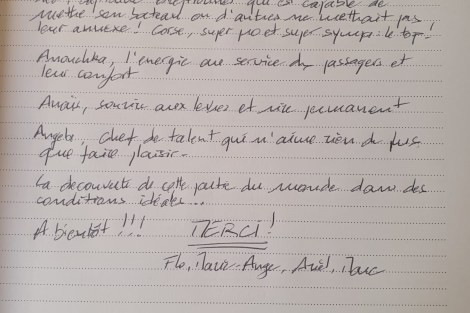 qui est capable de
mettre son bateau où d'autres ne mettrait pas
leur annexe! Corse, super pro et super sympa: le top!
Anouchka, l'energie au service des passagers et
leur confort
Anaïs, sourire aux lèvres et rire permanent
Angela, chef de talent qui n'aime rien de plus
que faire plaisir.
La decouverte de cette partie du monde dans des
conditions idéales...
A bientôt!!! MERCI!
Flo, Marie-Ange, Marc